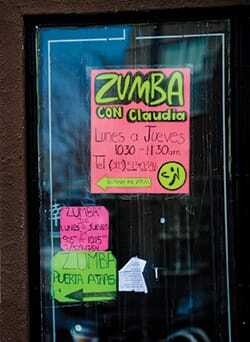 ZUMBA
CON Claudia
Lunes a Jueves
10:30 - 11:30am
Tel
ZUMBA
LUNES a JUEVES
ZUMBA
PUERTA ATRAS